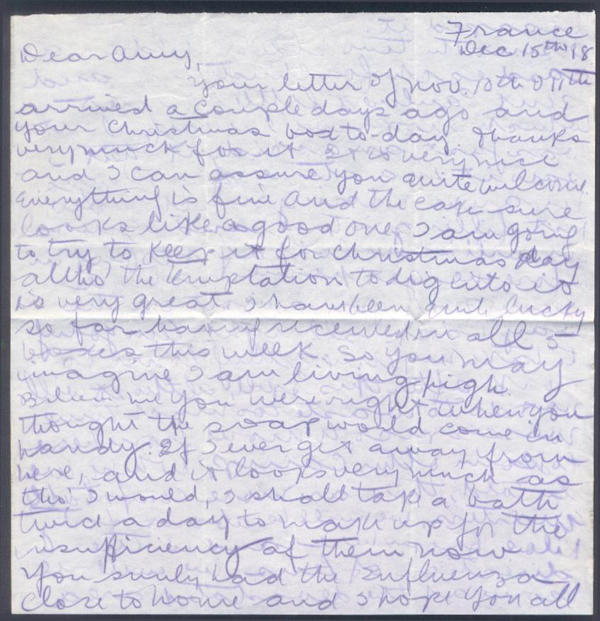 France
Dec 15th 18
Dear Amy,
Your letter of Nov. 10th & 11th
arrived a couple days ago and
your Christmas box to-day. Thanks
very much for it. It is very nice
and I can assure you quite welcome
Everything is fine and the cake sure
looks like a good one. I am going
to try to keep it for Christmas day
altho' the temptation to dig into it
is very great. I have been quite lucky
so far having received in all 5
boxes this week. So you may
imagine I am living high.
Believe me you were right when you
thought the soap would come in
handy. If I ever get away from
here, and it looks very much as
tho' I would, I shall take a bath
twice a day to make up for the
insufficiency of them now
You surely had the Influenza
close to home and I hope you all